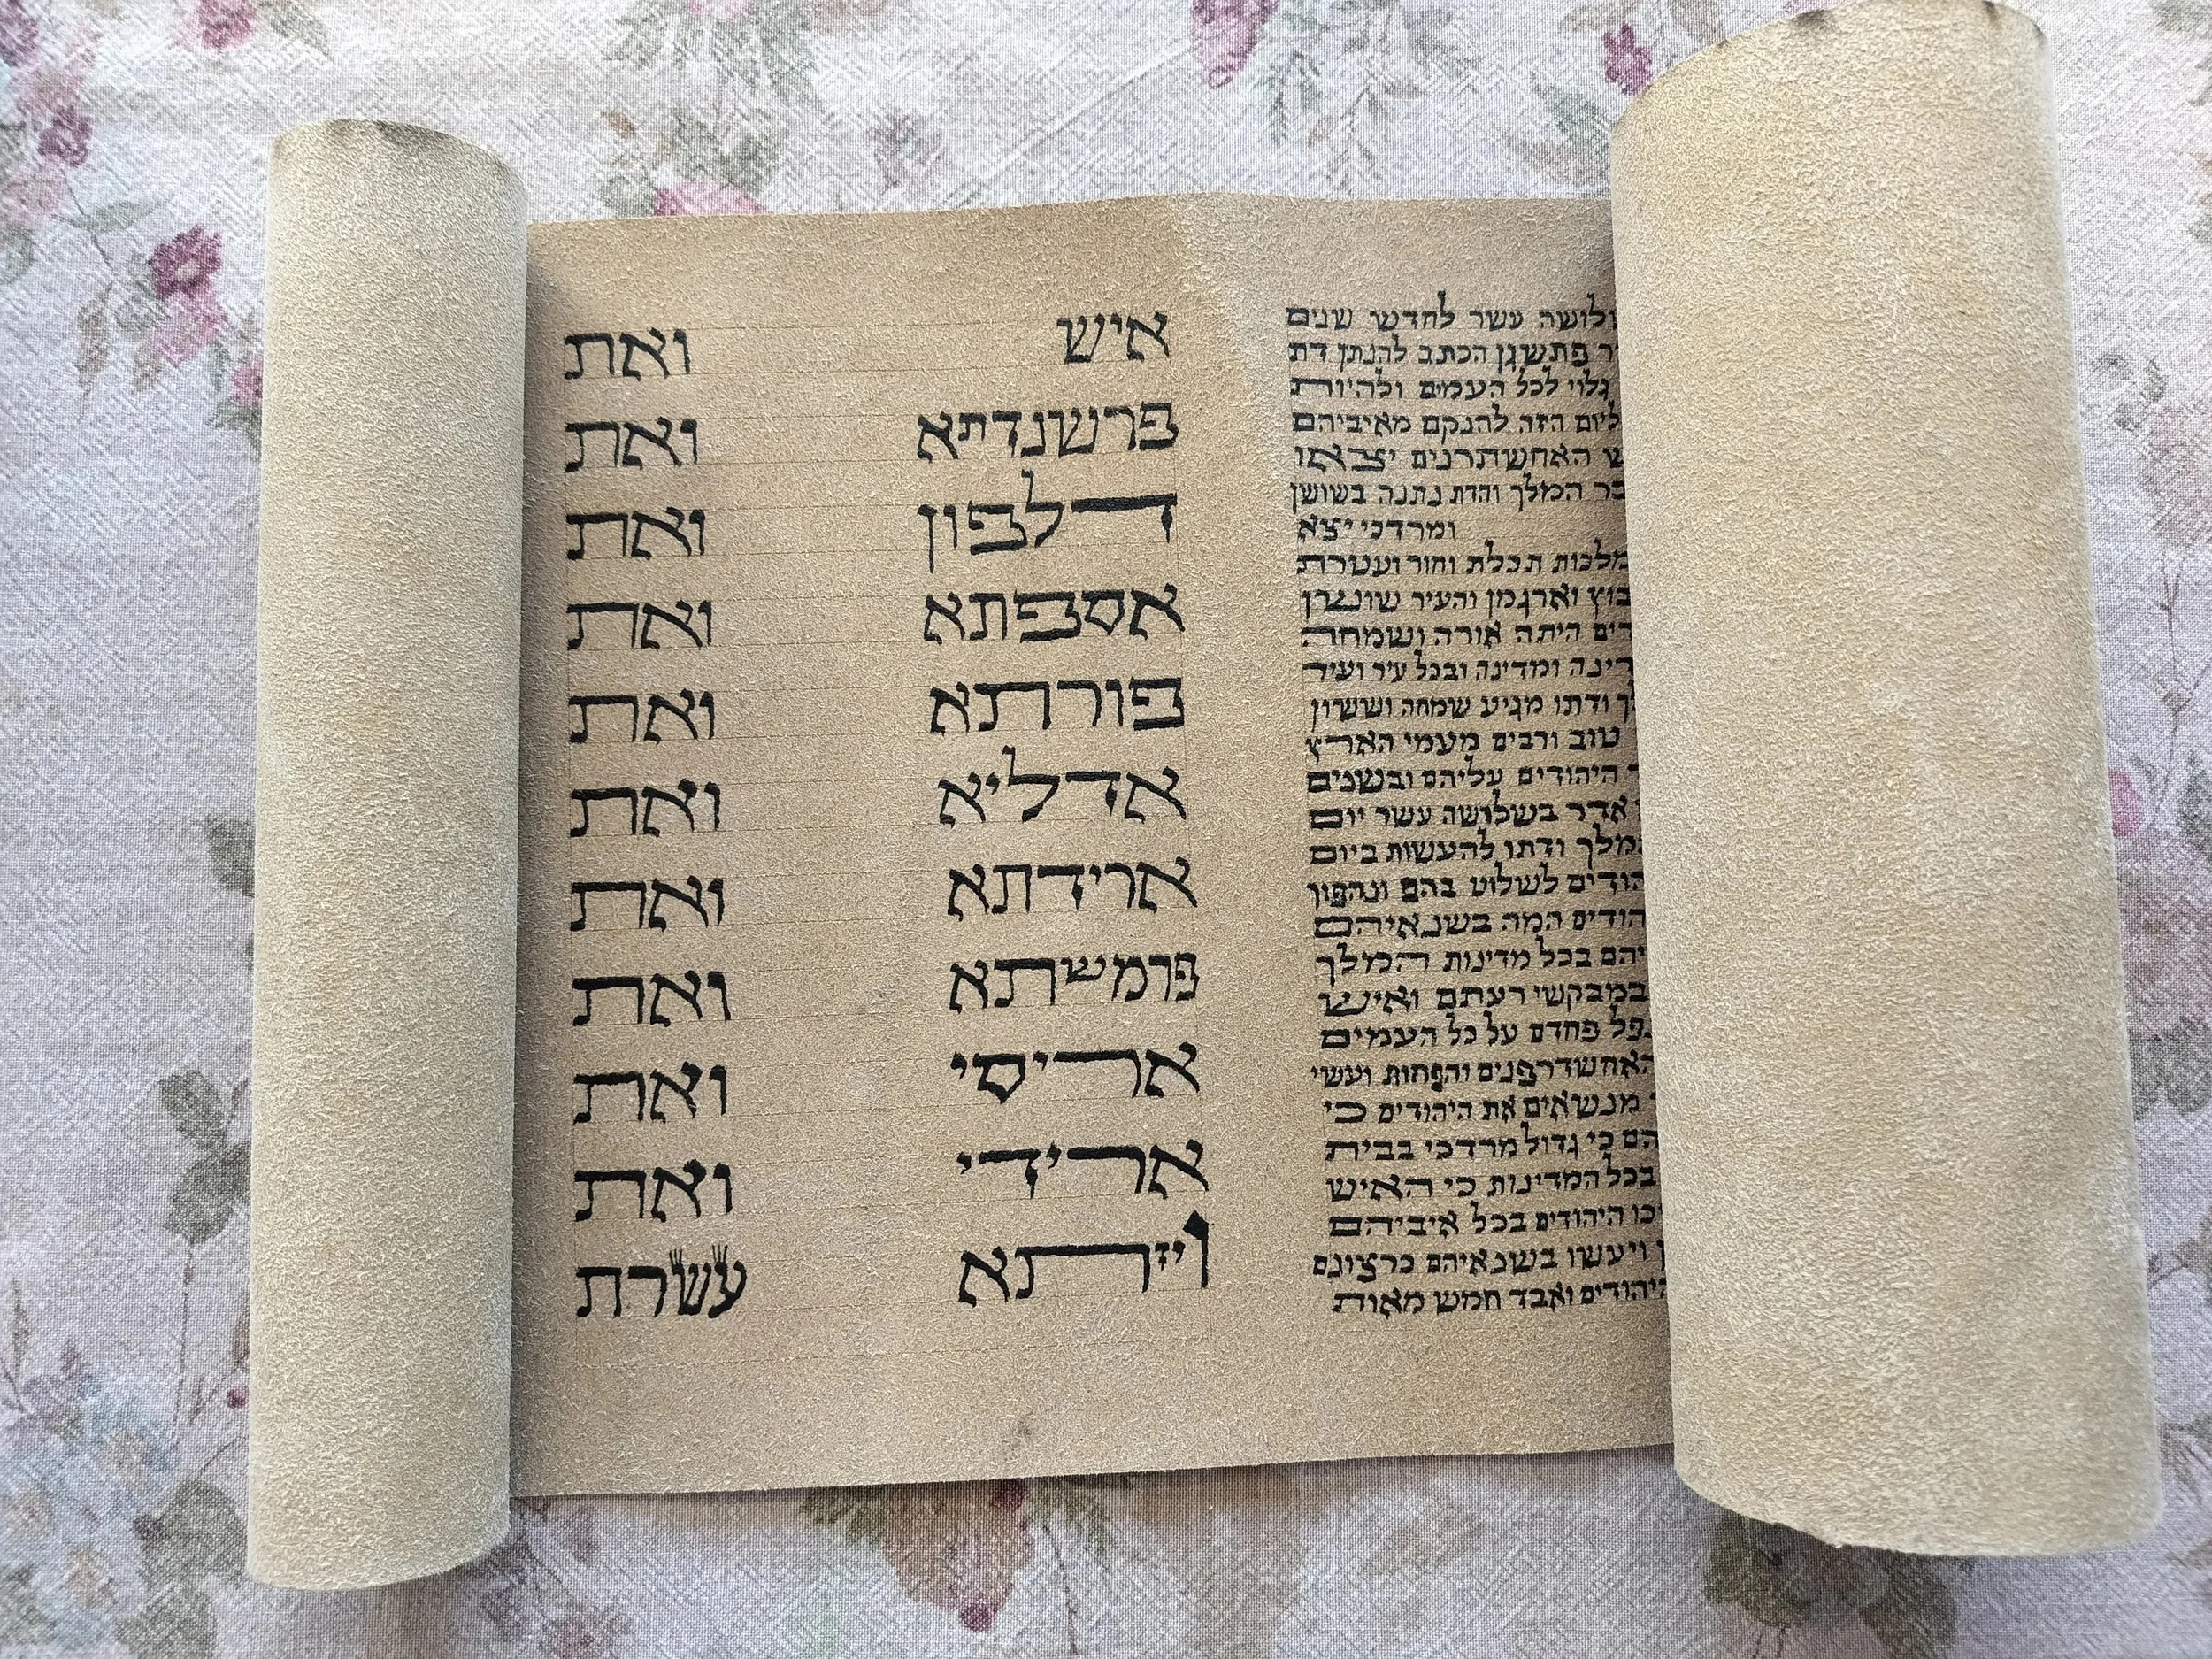 לושה עשר לחדש שנים
ר פתשגן הכתב להנתן דת
גלוי לכל העמים ולהיות
ליום הזה להנקם מאיביהם
ש האחשתרנים יצאו
בר המלך והדת נתנה בשושן
ומרדכי יצא
מלכות תכלת וחור ועטרת
בוץ וארגמן והעיר שושן
דים היתה אורה ושמחה
דינה ומדינה ובכל עיר ועיר
ך ודתו מגיע שמחה וששון
טוב ורבים מעמי הארץ
ד היהודים עליהם ובשנים
אדר בשלושה עשר יום
המלך ודתו להעשות ביום
הודים לשלוט בהם ונהפוך
הודים המה בשנאיהם
יהם בכל מדינות המלך
במבקשי רעתם ואיש
נפל פחדם על כל העמים
האחשדרפנים והפחות ועשי
מנשאים את היהודים כי
הם כי גדול מרדכי בבית
בכל המדינות כי האיש
כו היהודים בכל איביהם
ן ויעשו בשנאיהם כרצונם
היהודים ואבד חמש מאות
איש ואת
פרשנדתא ואת
דלפון ואת
אספתא ואת
פורתא ואת
אדליא ואת
ארידתא ואת
פרמשתא ואת
אריסי ואת
ארידי ואת
ויזתא עשרת